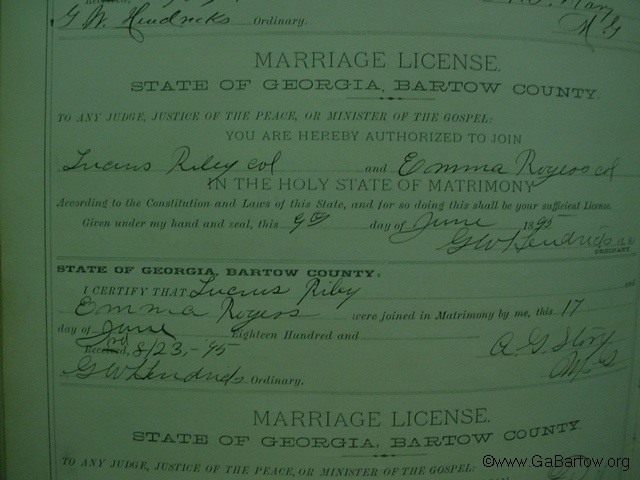 G W Hendricks Ordinary. M G
MARRIAGE LICENSE.
STATE OF GEORGIA, BARTOW COUNTY.
TO ANY JUDGE, JUSTICE OF THE PEACE, OR MINISTER OF THE GOSPEL:
YOU ARE HEREBY AUTHORIZED TO JOIN
Lucius Riley col and Emma Rogers col
IN THE HOLY STATE OF MATRIMONY
According to the Constitution and Laws of this State, and for so doing this shall be your sufficient License.
Given under my hand and seal, this day of June 1895
G W Hendricks
ORDINARY.
STATE OF GEORGIA, BARTOW COUNTY:
I CERTIFY THAT Lucius Riley and
Emma Rogers were joined in Matrimony by me, this 17
day of June Eighteen Hundred and
8/23,-95 A G Story
G W Hendricks Ordinary. M G
MARRIAGE LICENSE.
STATE OF GEORGIA, BARTOW COUNTY.
TO ANY JUDGE, JUSTICE OF THE PEACE, OR MINISTER OF THE GOSPEL:
©www.GaBartow.org